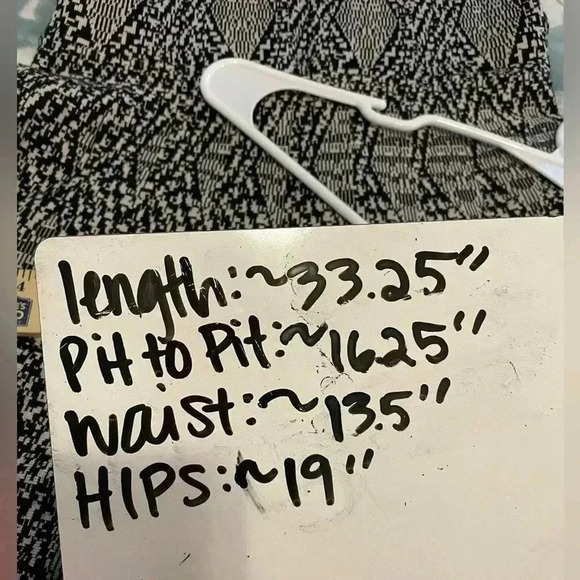 length: ~33.25"
Pit to Pit: ~16.25"
waist: ~13.5"
HIPS: ~19"